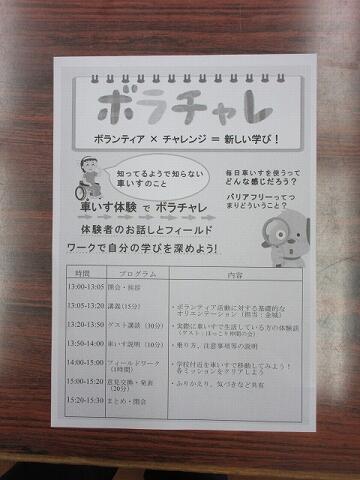 ボラチャレ
ボランティア × チャレンジ = 新しい学び！
知ってるようで知らない
車いすのこと
毎日車いすを使うって
どんな感じだろう？
バリアフリーってつ
まりどういうこと？
車いす体験 で ボラチャレ
体験者のお話しとフィールド
ワークで自分の学びを深めよう!
時間 プログラム 内容
13:00-13:05 開会・挨拶
13:05-13:20 講義(15分) ・ボランティア活動に対する基礎的な
オリエンテーション（担当：金城）
13:20-13:50 ゲスト講談（30分） ・実際に車いすで生活している方の体験談
（ゲスト：ほっこり仲間の会）
13:50-14:00 車いす説明（10分） ・乗り方、注意事項等の説明
14:00-15:00 フィールドワーク
（1時間） ・学校付近を車いすで移動してみよう！
各ミッションをクリアしよう
15:00-15:20 意見交換・発表
（20分） ・ふりかえり、気づきなど共有
15:20-15:30 まとめ・閉会